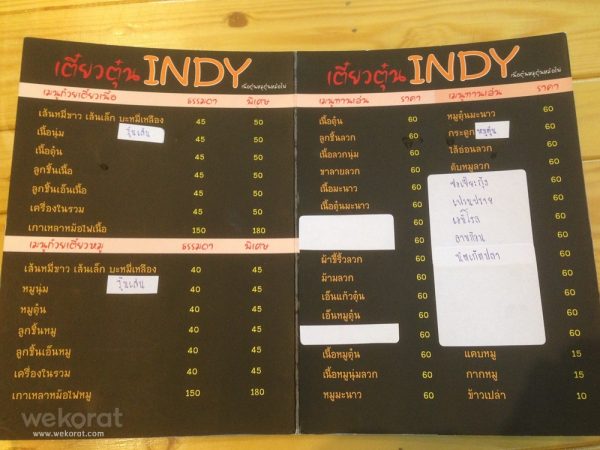 เตี๋ยวตุ๋น INDY
เนื้อตุ๋นหมูตุ๋นหม้อไฟ
เมนูก๋วยเตี๋ยวเนื้อ ธรรมดา พิเศษ
เส้นหมี่ขาว เส้นเล็ก บะหมี่เหลือง 45 50
วุ้นเส้น
เนื้อนุ่ม 45 50
เนื้อตุ๋น 45 50
ลูกชิ้นเนื้อ 45 50
ลูกชิ้นเอ็นเนื้อ 45 50
เครื่องในรวม 45 50
เกาเหลาหม้อไฟเนื้อ 150 180
เมนูก๋วยเตี๋ยวหมู ธรรมดา พิเศษ
เส้นหมี่ขาว เส้นเล็ก บะหมี่เหลือง 40 45
วุ้นเส้น
หมูนุ่ม 40 45
หมูตุ๋น 40 45
ลูกชิ้นหมู 40 45
ลูกชิ้นเอ็นหมู 40 45
เครื่องในรวม 40 45
เกาเหลาหม้อไฟหมู 150 180
wekorat
www.wekorat.com
เตี๋ยวตุ๋น INDY
เนื้อตุ๋นหมูตุ๋นหม้อไฟ
เมนูทานเล่น ราคา
เนื้อตุ๋น 60
ลูกชิ้นลวก 60
เนื้อลวกนุ่ม 60
ขาลายลวก 60
เนื้อมะนาว 60
เนื้อตุ๋นมะนาว 60
60
60
ผ้าขี้ริ้วลวก 60
ม้ามลวก 60
เอ็นแก้วตุ๋น 60
เอ็นหมูตุ๋น 60
60
เนื้อหมูตุ๋น 60
เนื้อหมูนุ่มลวก 60
หมูมะนาว 60
เมนูทานเล่น ราคา
หมูตุ๋นมะนาว 60
กระดูกหมูตุ๋น 60
ไส้อ่อนลวก 60
ตับหมูลวก 60
60
เปาะเปี๊ยะกุ้ง 60
60
60
60
60
60
60
60
60
แคบหมู 15
กากหมู 15
ข้าวเปล่า 10